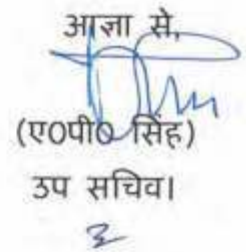 आज्ञा से,
(ए0पी0 सिंह)
उप सचिव।